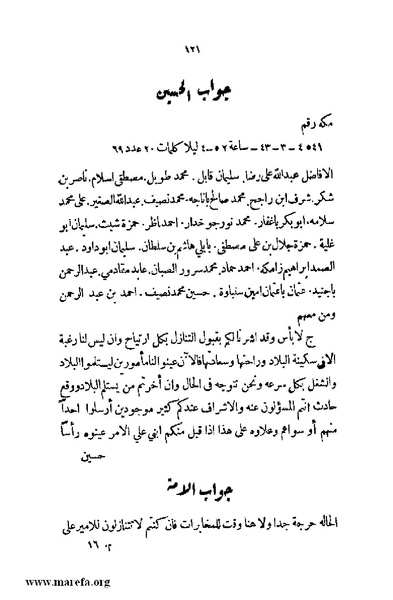 ١٢١
جواب الحسين
مكه رقم
٤٥٤١ – ٣ – ٤٣ – ساعة ٥٢ – ٤ ليلا كلمات ٢٠ عدد ٦٩
الافاضل عبدالله على رضا. سليمان قابل. محمد طويل. مصطفى اسلام. ناصر بن
شكر. شرف ابن راجح. محمد صالح باناجه. محمد نصيف. عبدالله الصغير. على محمد
سلامه. ابو بكر باغفار. محمد نور جوخدار. احمد ناظر. حمزة شيث. سليمان ابو
غلية. حمزة جلال بن على مصطفى. يا يلي هاشم بن سلطان. سليمان ابو داود. عبد
الصمد ابراهيم زامكه. احمد حماد. محمد سرور الصبان. عابد مقادمي. عبد الرحمن
باجنيد. عثمان باعثمان امين سنباوة. حسين محمد نصيف. احمد بن عبد الرحمن
ومن معهم
ج لا بأس وقد اشرنا لكم بقبول التنازل بكل ارتياح وان ليس لنا رغبة
الا فى سكينة البلاد وراحتها وسعادتها فالآن عينوا لنا مأمورين ليستلموا البلاد
وانشغل بكل سرعه ونحن نتوجه فى الحال وان أخرتم من يستلم البلاد ووقع
حادث انتم المسؤلون عنه والاشراف عندكم كثير موجودين أرسلوا احداً
منهم أو سواهم وعلاوه على هذا اذا قبل منكم ابني علي الامر عينوه رأساً
حسين
جواب الامة
الحاله حرجة جدا ولا هنا وقت للمخابرات فان كنتم لا تتنازلون للامير على
م. ١٦
www.marefa.org